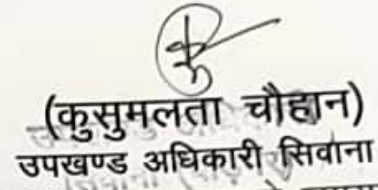 (कुसुमलता चौहान)
उपखण्ड अधिकारी सिवाना